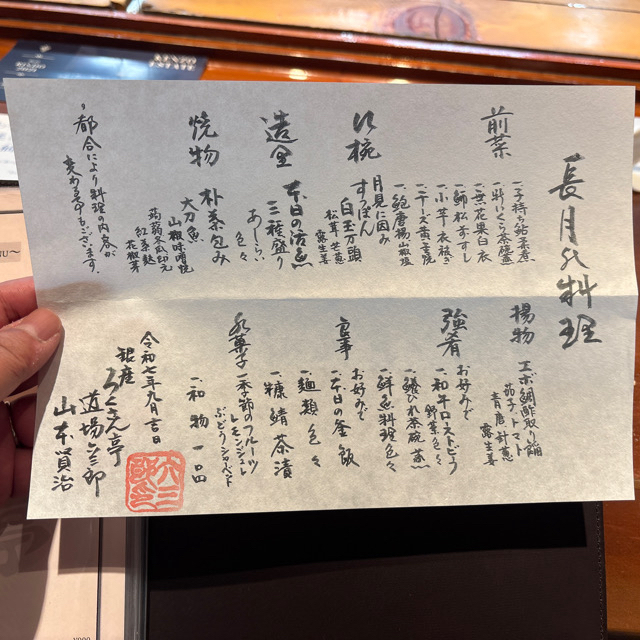 長月の料理
前菜
一、子持ち鮎煮
一、いくら茶碗蒸
一、無花果白衣
一、鰤松前すし
一、小芋衣被き
一、チーズ黄金焼
一、鮑唐揚山椒塩
吸椀
月見に因み
すっぽん
白玉万頭
松茸 芽葱
露生姜
造里
本日の活魚
三種盛り
あしらい色々
焼物
朴葉包み
太刀魚
山椒味噌焼
蒟蒻 冬瓜 印元
紅葉麩
花椒芽
都合により料理の内容が
変わる事もございます。
揚物
エボ鯛酢取り餡
茄子、トマト
青唐 針葱
露生姜
強肴
お好みで
一、和牛ローストビーフ
野菜色々
一、鱶ひれ茶碗蒸
一、鮮魚料理色々
食事
お好みで
一、本日の釜飯
一、麺類色々
一、糠鯖茶漬
水菓子
一、季節のフルーツ
レモンジュレ
ぶどうシャーベット
一、和物一品
令和七年九月吉日
銀座
ろくさん亭
道場六三郎
山本賢治